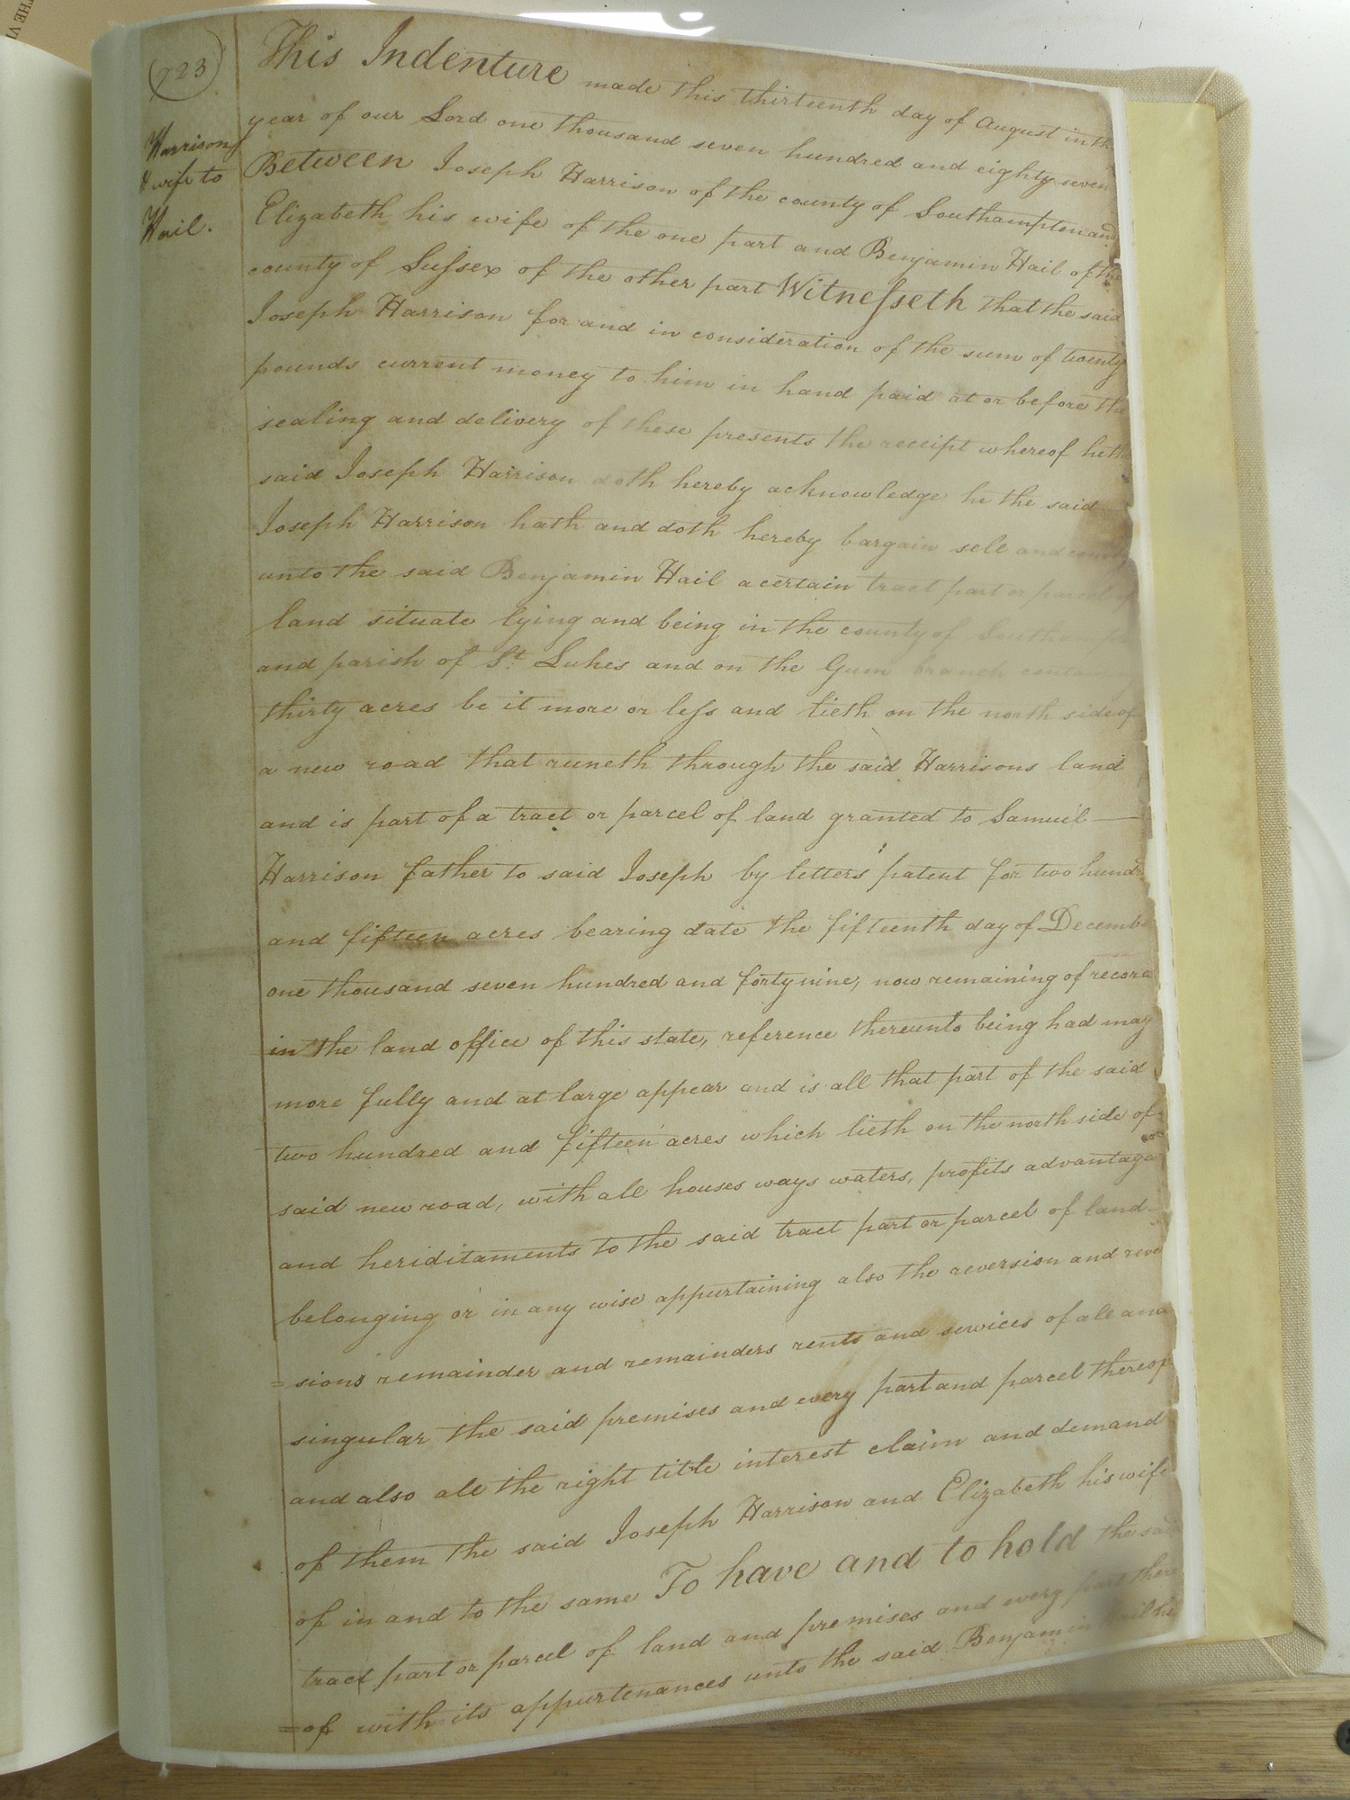 THE VI
(723)
Harrison
& wife to
Hail.
This Indenture made this thirteenth day of August in the
year of our Lord one thousand seven hundred and eighty seven
Between Joseph Harrison of the county of Southampton and
Elizabeth his wife of the one part and Benjamin Hail of the
county of Sussex of the other part Witnesseth that the said
Joseph Harrison for and in consideration of the sum of twenty
pounds current money to him in hand paid at or before the
sealing and delivery of these presents the receipt whereof he the
said Joseph Harrison doth hereby acknowledge he the said
Joseph Harrison hath and doth hereby bargain sell and convey
unto the said Benjamin Hail a certain tract part or parcel of
land situate lying and being in the county of Southampton
and parish of St. Lukes and on the Gum branch containing
thirty acres be it more or less and lieth on the north side of
a new road that runeth through the said Harrisons land
and is part of a tract or parcel of land granted to Samuel
Harrison father to said Joseph by letters patent for two hundr
and fifteen acres bearing date the fifteenth day of Decembe
one thousand seven hundred and forty nine, now remaining of record
in the land office of this state, reference thereunto being had may
more fully and at large appear and is all that part of the said
two hundred and fifteen acres which lieth on the north side of
said new road, with all houses ways waters, profits advantage
and heriditaments to the said tract part or parcel of land
belonging or in any wise appurtaining also the reversion and reve
=sions remainder and remainders rents and services of all and
singular the said premises and every part and parcel thereof
and also all the right title interest claim and demand
of them the said Joseph Harrison and Elizabeth his wife
of in and to the same To have and to hold the said
tract part or parcel of land and premises and every part there
=of with its appurtenances unto the said Benjamin Hail his